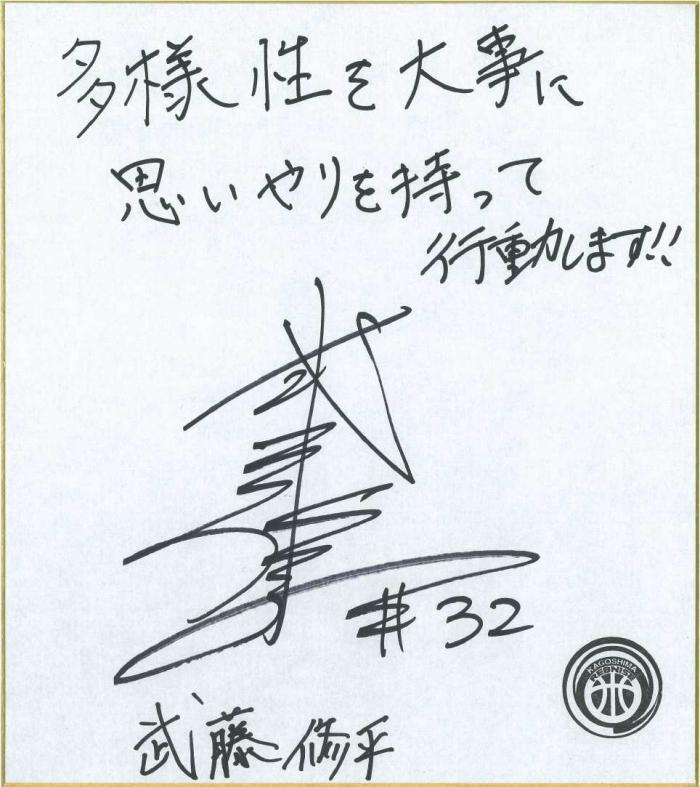 多様性を大事に
思いやりを持って
行動します!!
#32
KAGOSHIMA
REBNISE
武藤修平